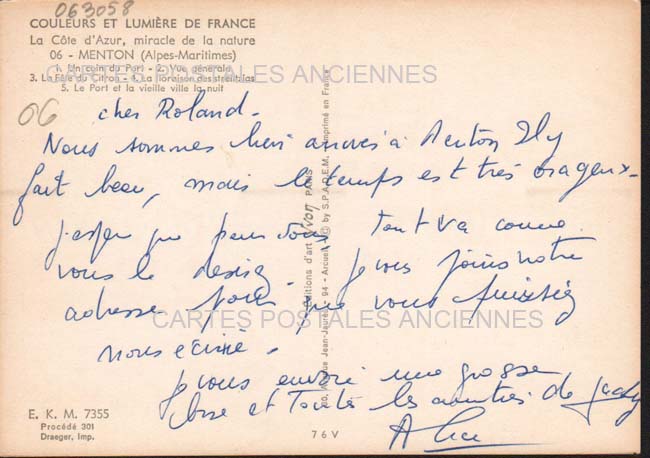 063058
COULEURS ET LUMIÈRE DE FRANCE
La Côte d'Azur, miracle de la nature
06 - MENTON (Alpes-Maritimes)
1. Un coin du Port - 2. Vue générale
3. La Fête du Citron - 4. La floraison des strelitzias
5. Le Port et la vieille ville la nuit
CARTES POSTALES ANCIENNES
06
cher Roland.
Nous sommes bien arrivés à Menton Il y
fait beau, mais le temps est très orageux.
j'espère que pour vous tout va comme
vous le désirez je vous joins notre
adresse pour que vous puissiez
nous écrire.
je vous envoie une grosse
bise et toutes les amitiés de
Alice
CARTES POSTALES ANCIENNES
Éditions d'art YVON PARIS
Rue Jean-Jaurès - 94 - Arcueil © by S.P.A.D.E.M. Imprimé en France
E. K. M. 7355
Procédé 301
Draeger, Imp.
76 V